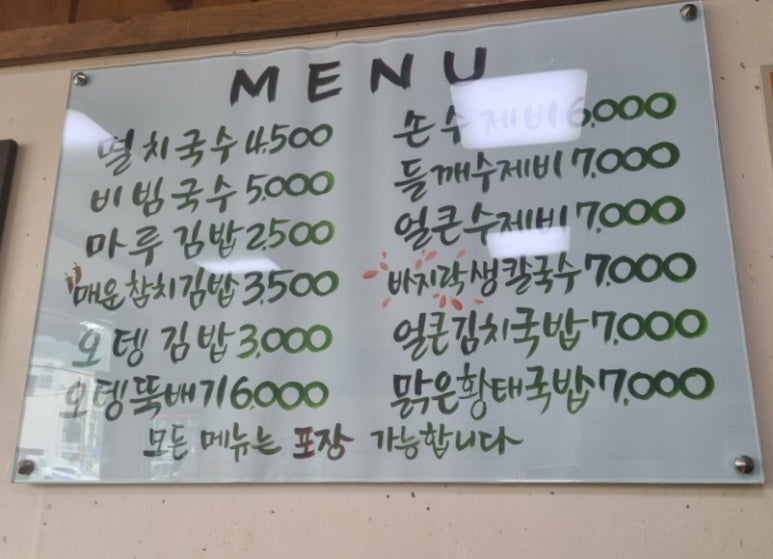 MENU
멸치국수 4,500
비빔국수 5,000
마루김밥 2,500
매운참치김밥 3,500
오뎅김밥 3,000
오뎅뚝배기 6,000
손수제비 6,000
들깨수제비 7,000
얼큰수제비 7,000
바지락생칼국수 7,000
얼큰김치국밥 7,000
맑은황태국밥 7,000
모든 메뉴는 포장 가능합니다